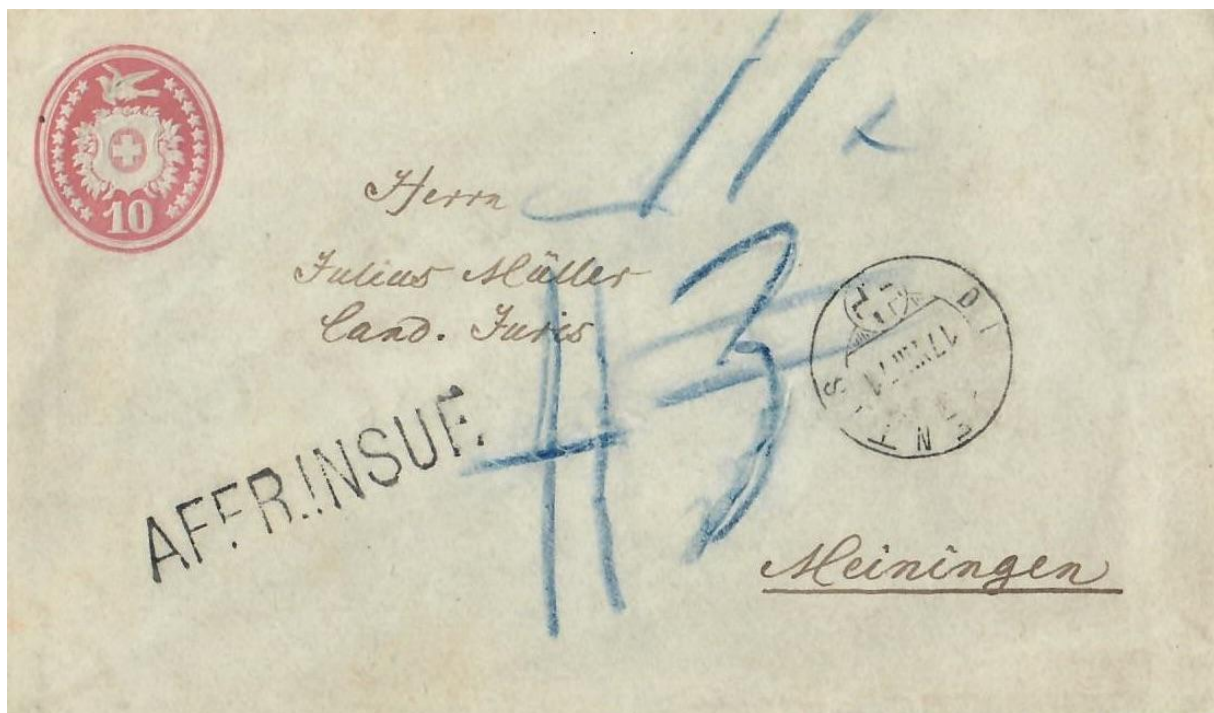 10
Herrn
Julius Müller
Cand. Juris
AFFR. INSUF.
113
Meiningen